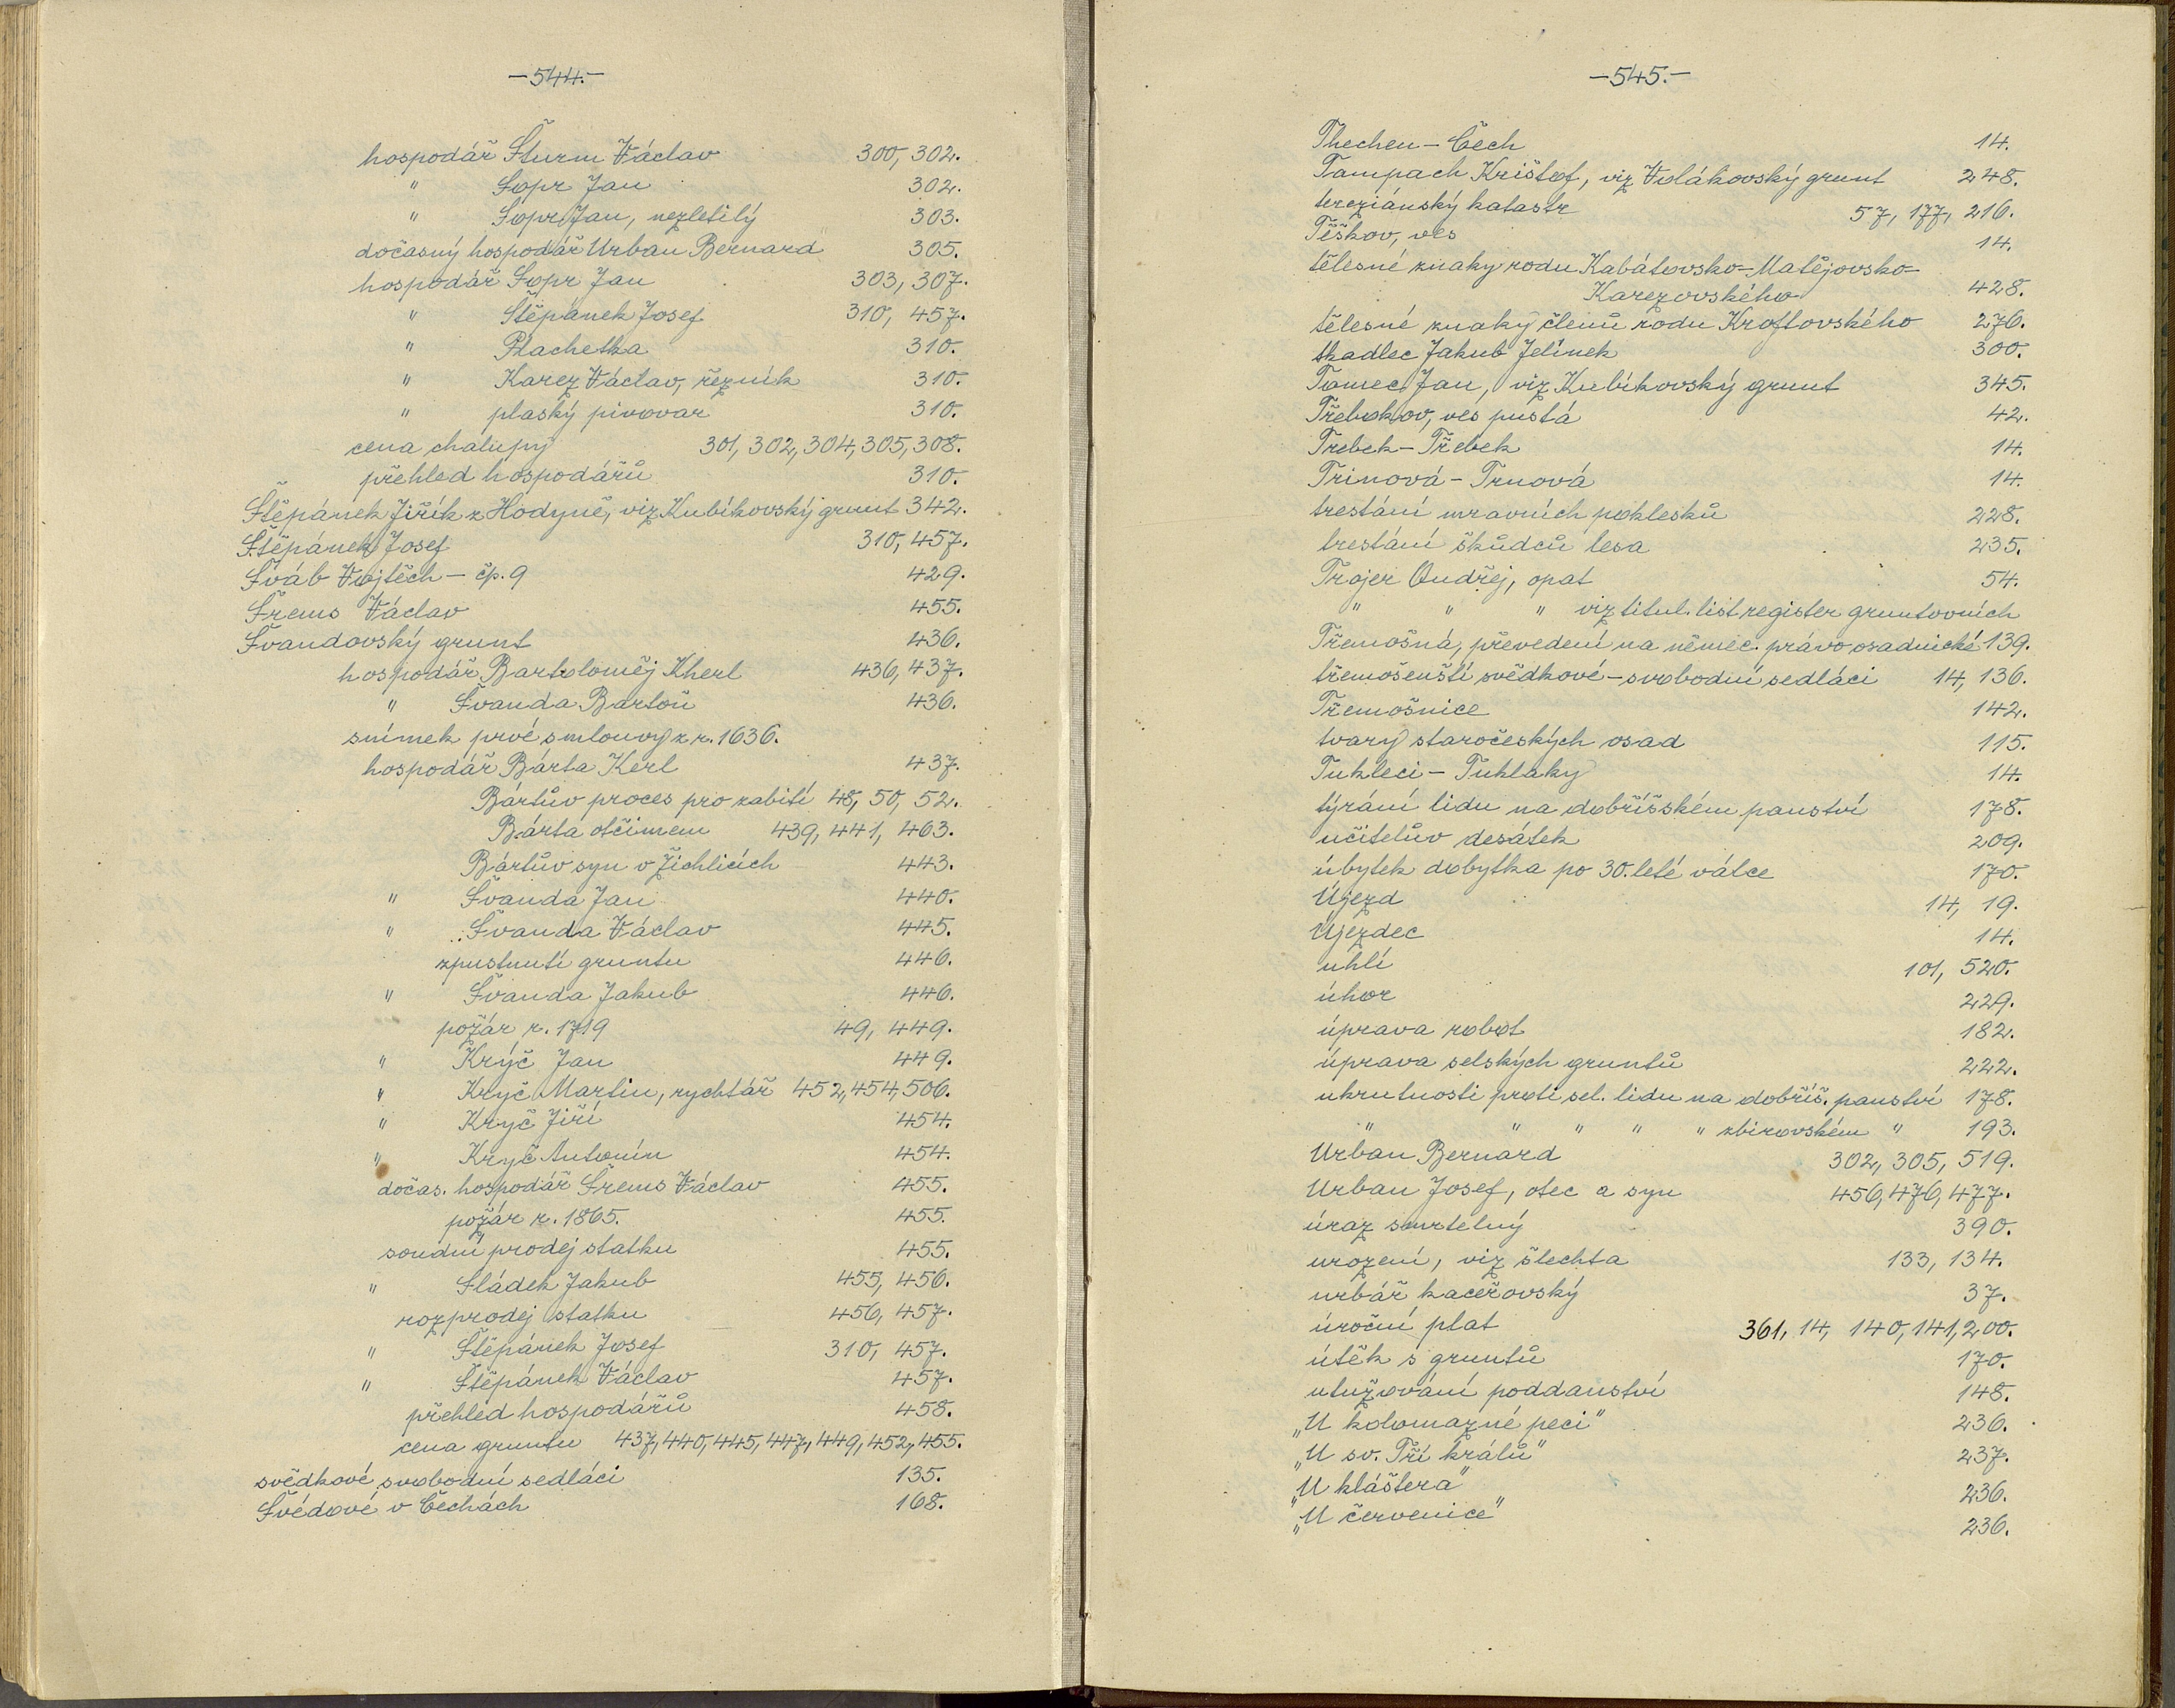 -544.-
hospodář Šturm Václav 300, 302.
" Šopr Jan 302.
" Šopr Jan, nezletilý 303.
dočasný hospodář Urban Bernard 305.
hospodář Šopr Jan 303, 307.
" Štěpánek Josef 310, 457.
" Plachetka 310.
" Karez Václav, řezník 310.
" plaský pivovar 310.
cena chalupy 301, 302, 304, 305, 308.
přehled hospodářů 310.
Štěpánek Jiřík z Hodyně, viz Kubíkovský grunt 342.
Štěpánek Josef 310, 457.
Šváb Vojtěch - čp. 9 429.
Šrems Václav 455.
Švandovský grunt 436.
hospodář Bartoloměj Kherl 436, 437.
" Švanda Bartoň 436.
snímek prvé smlouvy z r. 1636.
hospodář Bárta Kerl 437.
Bártův proces pro zabití 48, 50, 52.
Bárta otčimem 439, 441, 463.
Bártův syn v Žichlicích 443.
" Švanda Jan 440.
" Švanda Václav 445.
zpustnutí gruntu 446.
" Švanda Jakub 446.
požár r. 1719 49, 449.
" Krýč Jan 449.
" Kryč Martin, rychtář 452, 454, 506.
" Kryč Jiří 454.
" Kryč Antonín 454.
dočas. hospodář Šrems Václav 455.
požár r. 1865. 455.
soudní prodej statku 455.
" Sládek Jakub 455, 456.
rozprodej statku 456, 457.
" Štěpánek Josef 310, 457.
" Štěpánek Václav 457.
přehled hospodářů 458.
cena gruntu 437, 440, 445, 447, 449, 452, 455.
svědkové svobodní sedláci 135.
Švédové v Čechách 168.
-545.-
Thechen - Čech 14.
Tampach Krištof, viz Volákovský grunt 248.
tereziánský katastr 57, 177, 216.
Těškov, ves 14.
tělesné znaky rodu Kabátovsko-Matějovsko-
Karezovského 428.
tělesné znaky členů rodu Kroftovského 276.
tkadlec Jakub Jelínek 300.
Tomec Jan, viz Kubíkovský grunt 345.
Třebokov, ves pustá 42.
Trebek - Třebek 14.
Trinová - Trnová 14.
trestání mravních poklesků 228.
trestání škůdců lesa 235.
Trojer Ondřej, opat 54.
" " " viz titul. list register gruntovních
Třemošná, převedení na němec. právo osadnické 139.
třemošenští svědkové - svobodní sedláci 14, 136.
Třemošnice 142.
tvary staročeských osad 115.
Tukleci - Tuhlaky 14.
týrání lidu na dobříšském panství 178.
učitelův desátek 209.
úbytek dobytka po 30. leté válce 170.
Újezd 14, 19.
Újezdec 14.
uhlí 101, 520.
úhor 229.
úprava robot 182.
úprava selských gruntů 222.
ukrutnosti proti sel. lidu na dobříš. panství 178.
" " " " " zbirovském " 193.
Urban Bernard 302, 305, 519.
Urban Josef, otec a syn 456, 476, 477.
úraz smrtelný 390.
urození, viz šlechta 133, 134.
urbář kaceřovský 37.
úroční plat 361, 14, 140, 141, 200.
útěk s gruntů 170.
utužování poddanství 148.
„U kolomazné peci" 236.
„U sv. Tří králů" 237.
„U kláštera" 236.
„U červenice" 236.